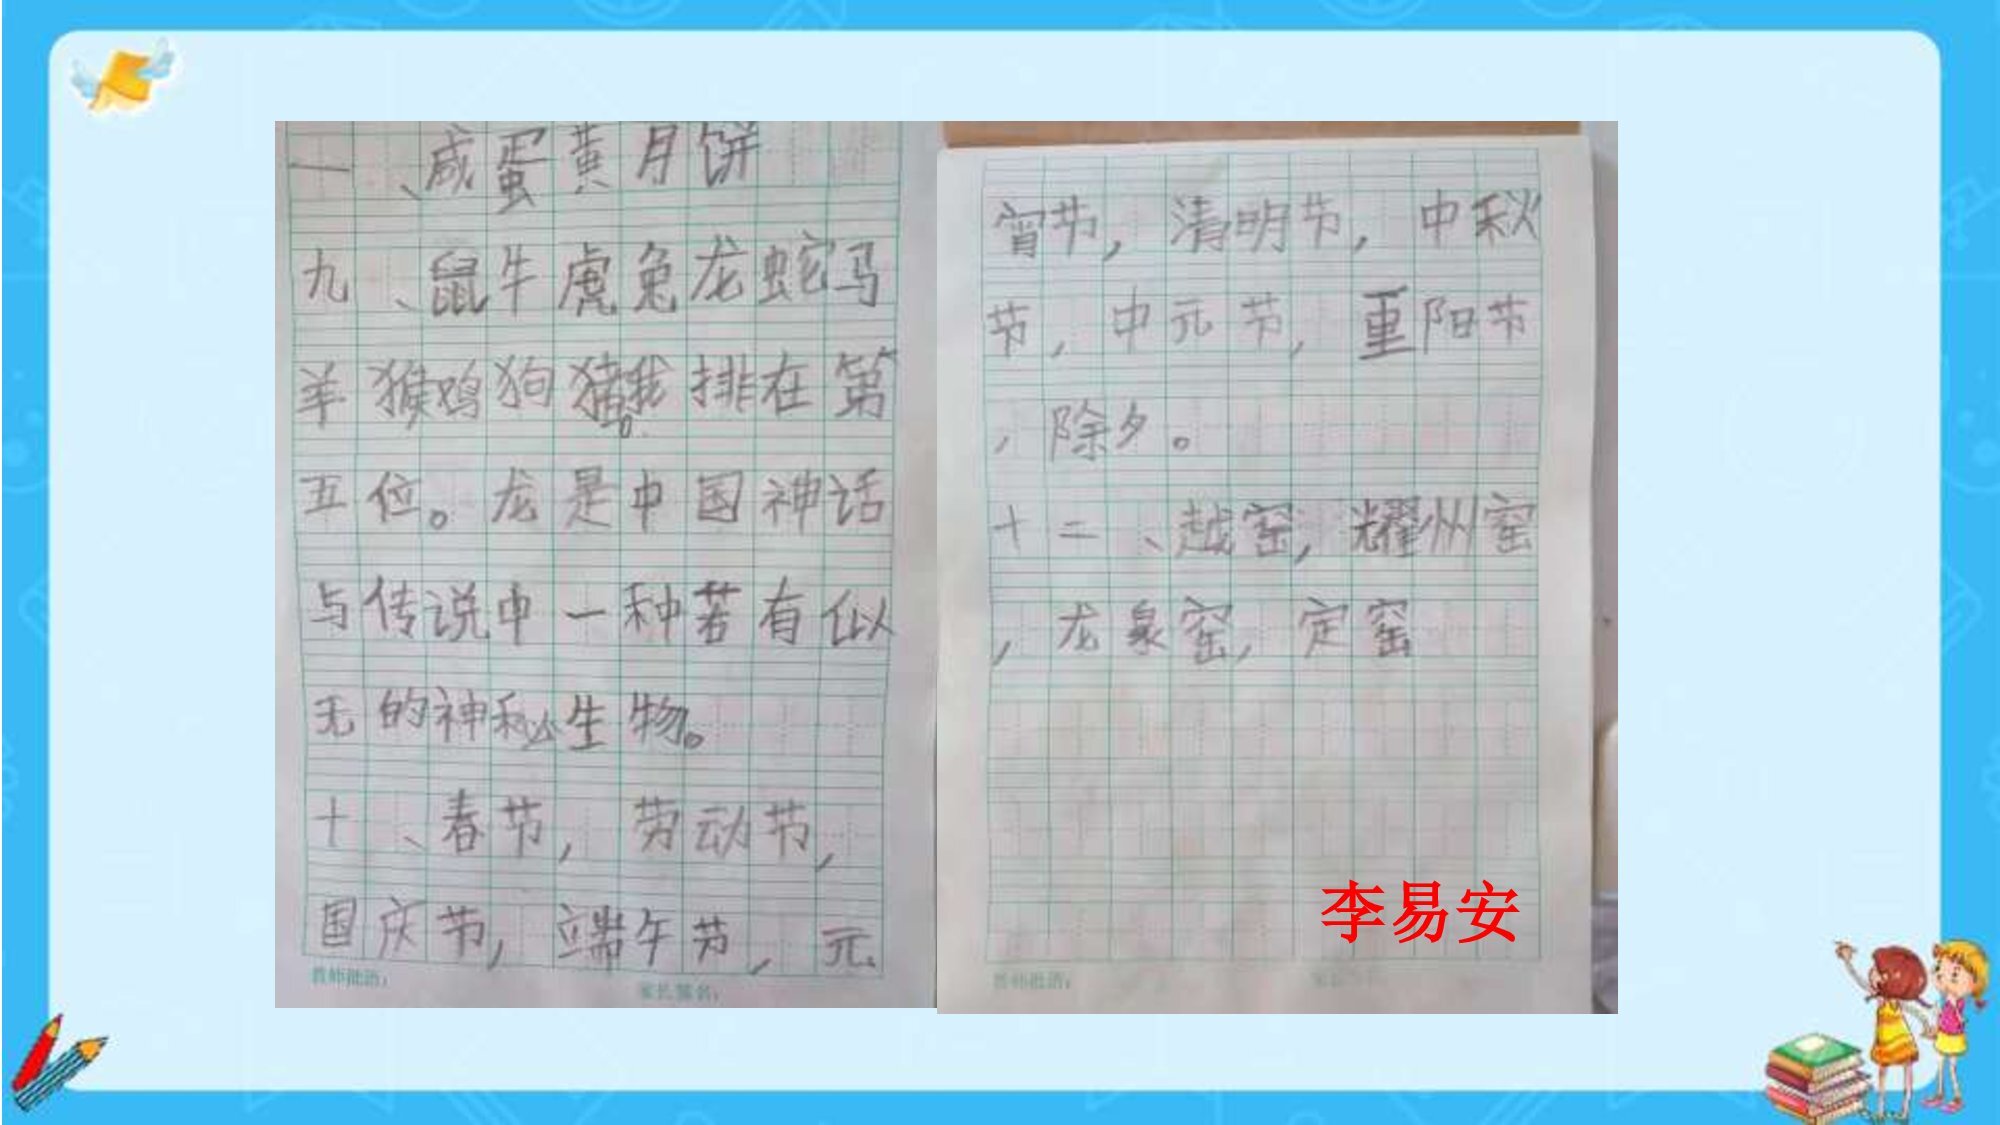 一、咸蛋黄月饼
九、鼠牛虎兔龙蛇马
羊猴鸡狗猪。我排在第
五位。龙是中国神话
与传说中一种若有似
无的神秘生物。
十、春节，劳动节，
国庆节，端午节，元
教师批语：
家长签名：
宵节，清明节，中秋
节，中元节，重阳节
，除夕。
十二、越窑，耀州窑
，龙泉窑，定窑
李易安
教师批语：